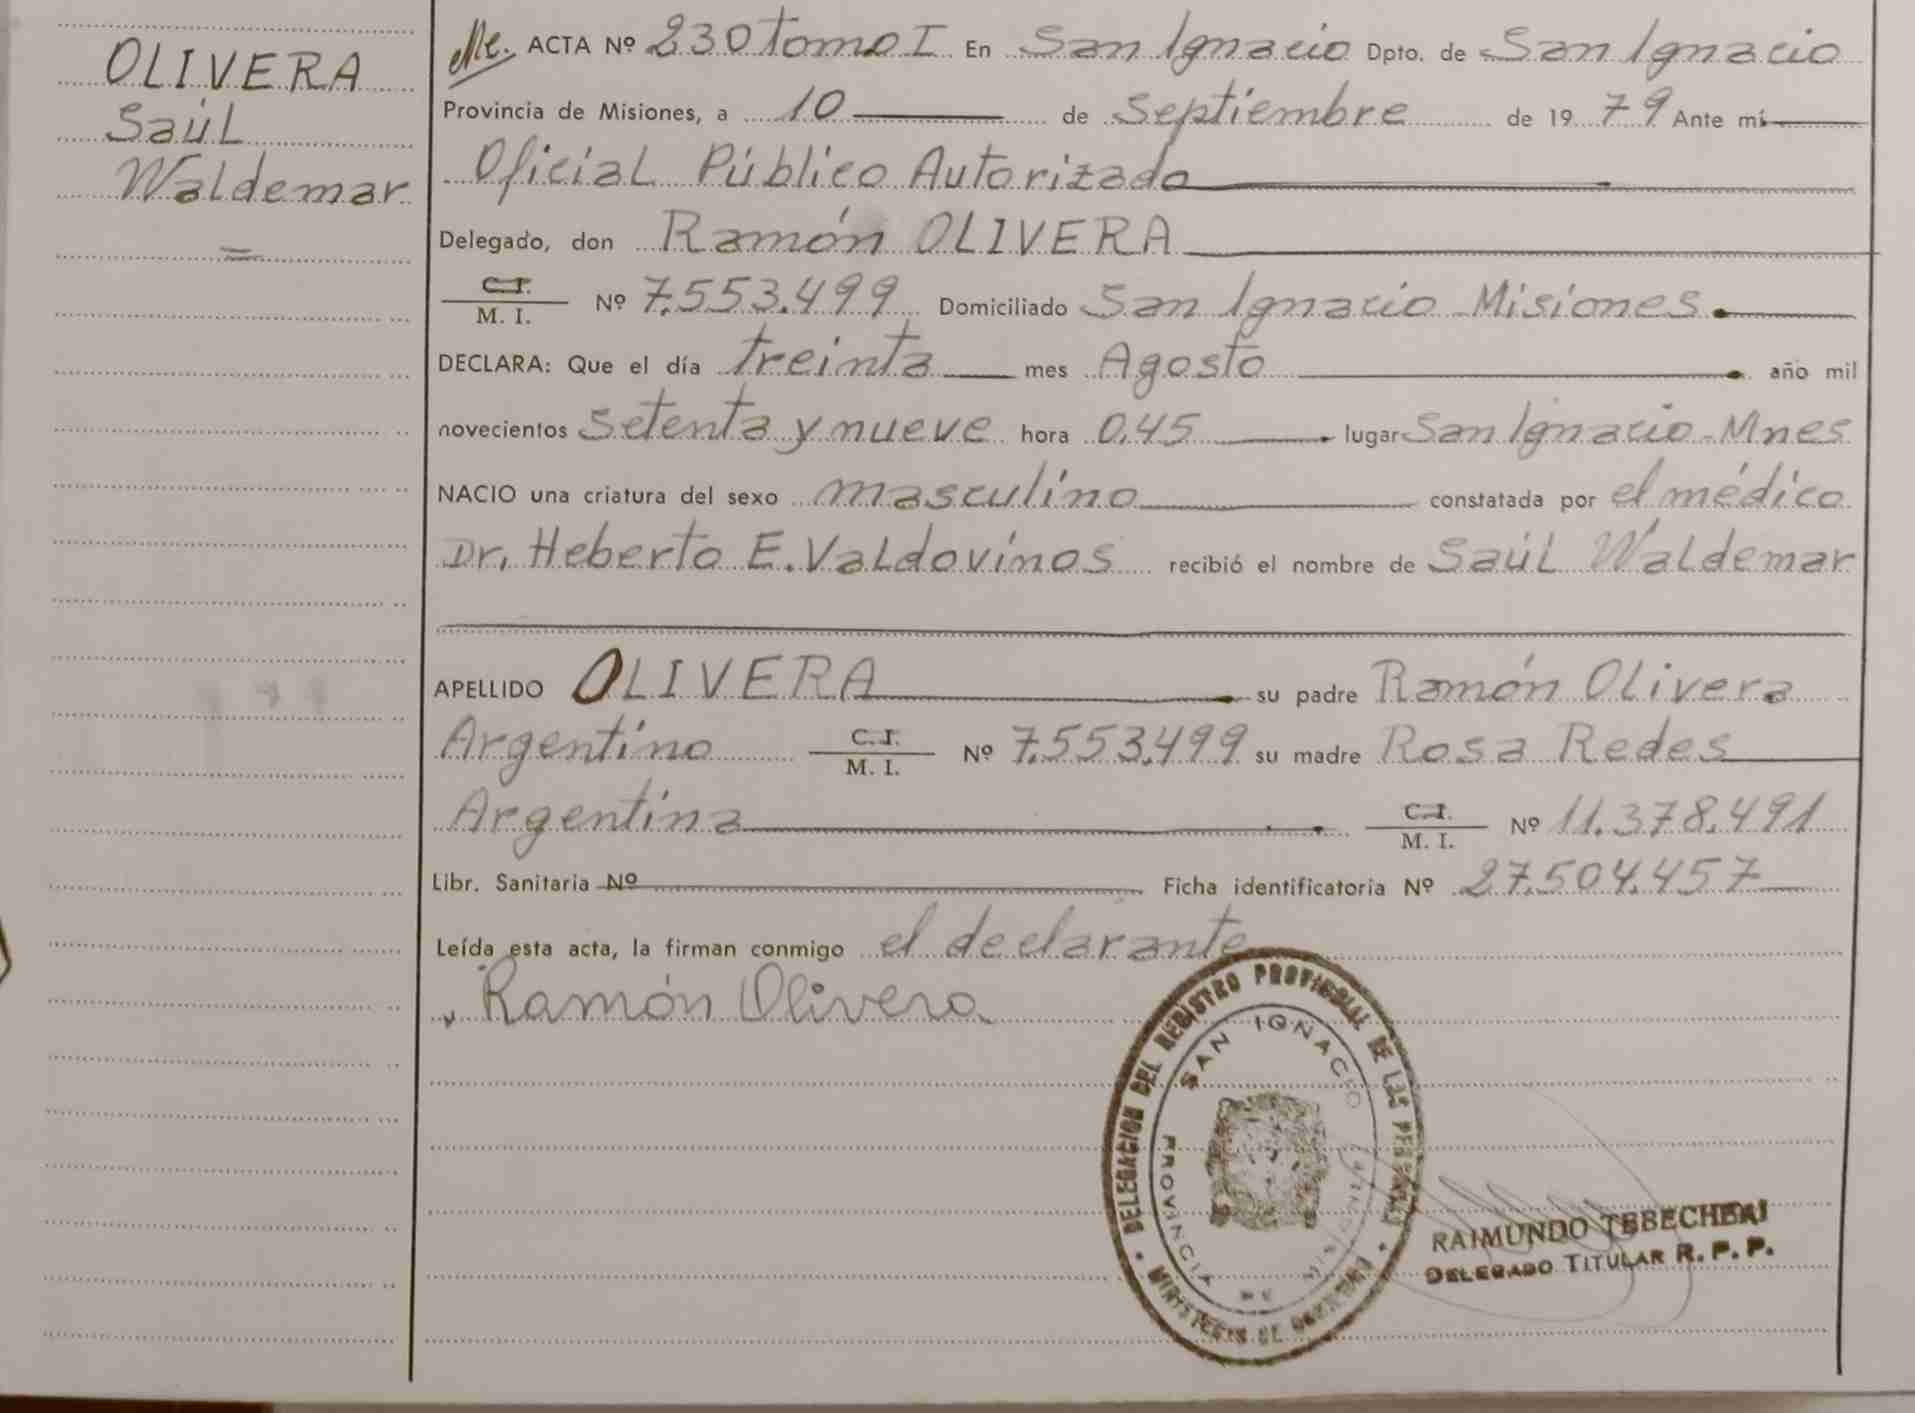 OLIVERA
Saúl
Waldemar
=
ACTA Nº 230 Tomo I En San Ignacio Dpto. de San Ignacio
Provincia de Misiones, a 10 de Septiembre de 1979 Ante mí
Oficial Público Autorizado
Delegado, don Ramón OLIVERA
C.I. M. I. Nº 7.553.499 Domiciliado San Ignacio Misiones.
DECLARA: Que el día treinta mes Agosto año mil
novecientos setenta y nueve hora 0,45 lugar San Ignacio-Mnes
NACIO una criatura del sexo masculino constatada por el médico
Dr, Heberto E. Valdovinos recibió el nombre de Saúl Waldemar
APELLIDO OLIVERA su padre Ramón Olivera
Argentino C.I. M. I. Nº 7.553.499 su madre Rosa Redes
Argentina C.I. M. I. Nº 11.378.491
Libr. Sanitaria Nº Ficha identificatoria Nº 27.504.457
Leída esta acta, la firman conmigo el declarante
Ramón Olivera
DELEGACION DEL REGISTRO PROVINCIAL DE LAS PERSONAS
SAN IGNACIO
PROVINCIA DE
MINISTERIO DE GOBIERNO
RAIMUNDO TEBECHERI
DELEGADO TITULAR R. P. P.